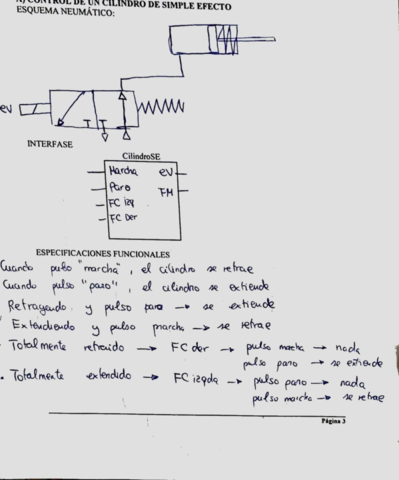 A) CONTROL DE UN CILINDRO DE SIMPLE EFECTO
ESQUEMA NEUMÁTICO:
eV
INTERFASE
CilindroSE
Marcha eV
Paro FM
FC izq
FC Der
ESPECIFICACIONES FUNCIONALES
Cuando pulso "marcha", el cilindro se retrae
Cuando pulso "paro", el cilindro se extiende
Retrayendo y pulso paro → se extiende
Extendiendo y pulso marcha → se retrae
Totalmente retraido → FC der → pulso marcha → nada
pulso paro → se extiende
. Totalmente extendido → FC izqda → pulso paro → nada
pulso marcha → se retrae
Página 3